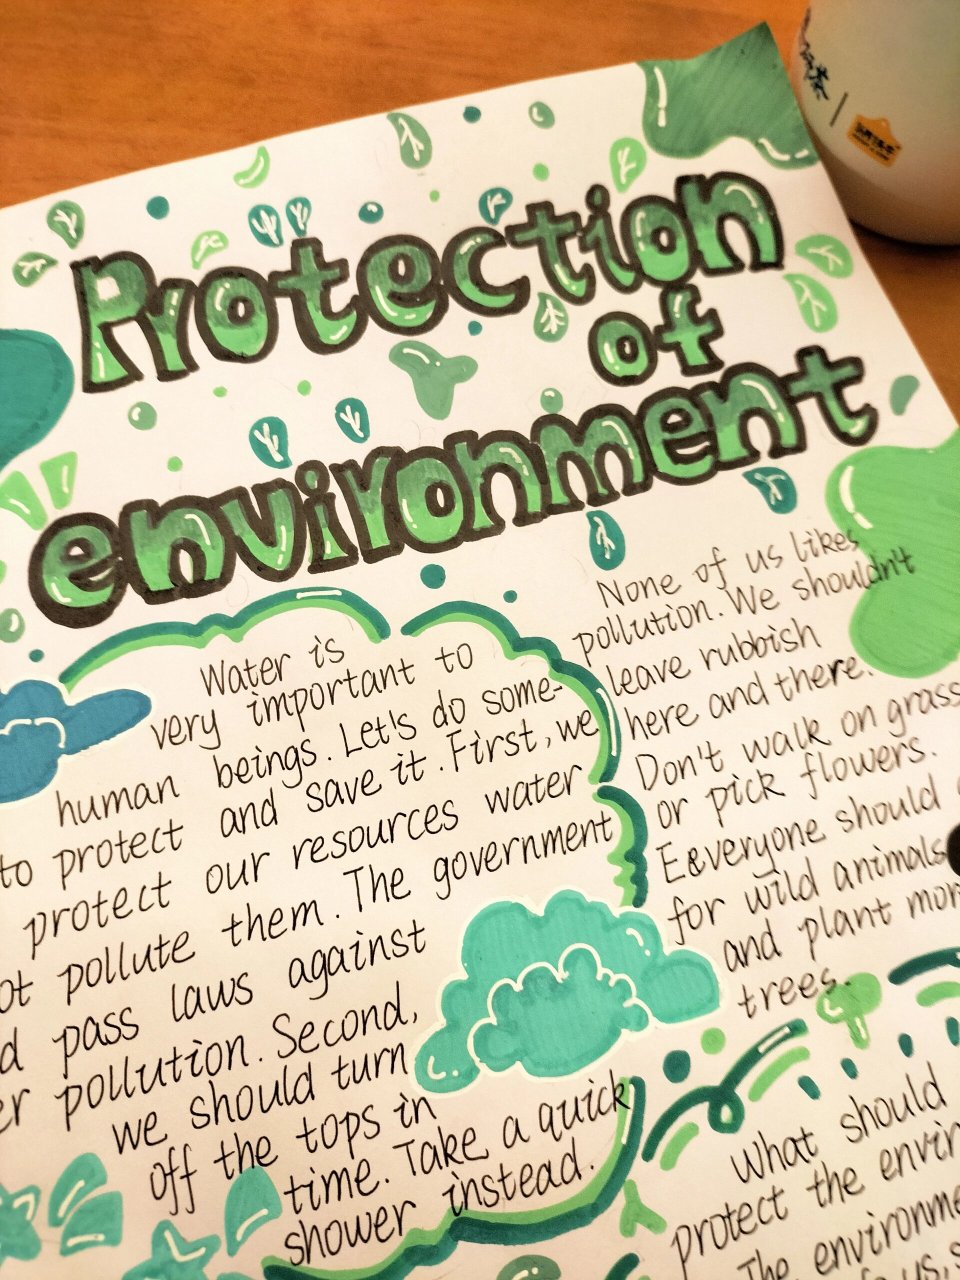 Protection
of
environment
Water is
very important to
human beings. Let's do some-
to protect and save it. First, we
protect our resources water
pollute them. The government
pass laws against
pollution. Second,
we should turn
off the tops in
time. Take a quick
shower instead.
None of us likes
pollution. We shouldn't
leave rubbish
here and there.
Don't walk on grass
or pick flowers.
Eeveryone should
for wild animals
and plant
trees.
What should
protect the
The
us,
茶